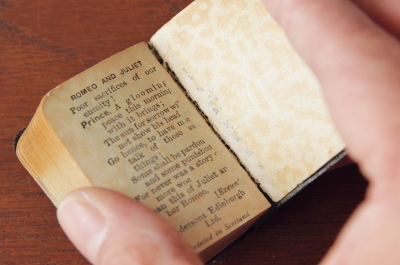 ROMEO AND JULIET
Poor sacrifices of our
enmity!
Prince. A glooming
peace this morning
with it brings;
The sun for sorrow
not show his head
Go hence, to have m
talk of these sa
things:
Some shall be pardon
and some punished
For never was a story
more woe
an this of Juliet an
her Romeo. [Exeun
dersons Edinburgh
Ltd.
rinted in Scotland